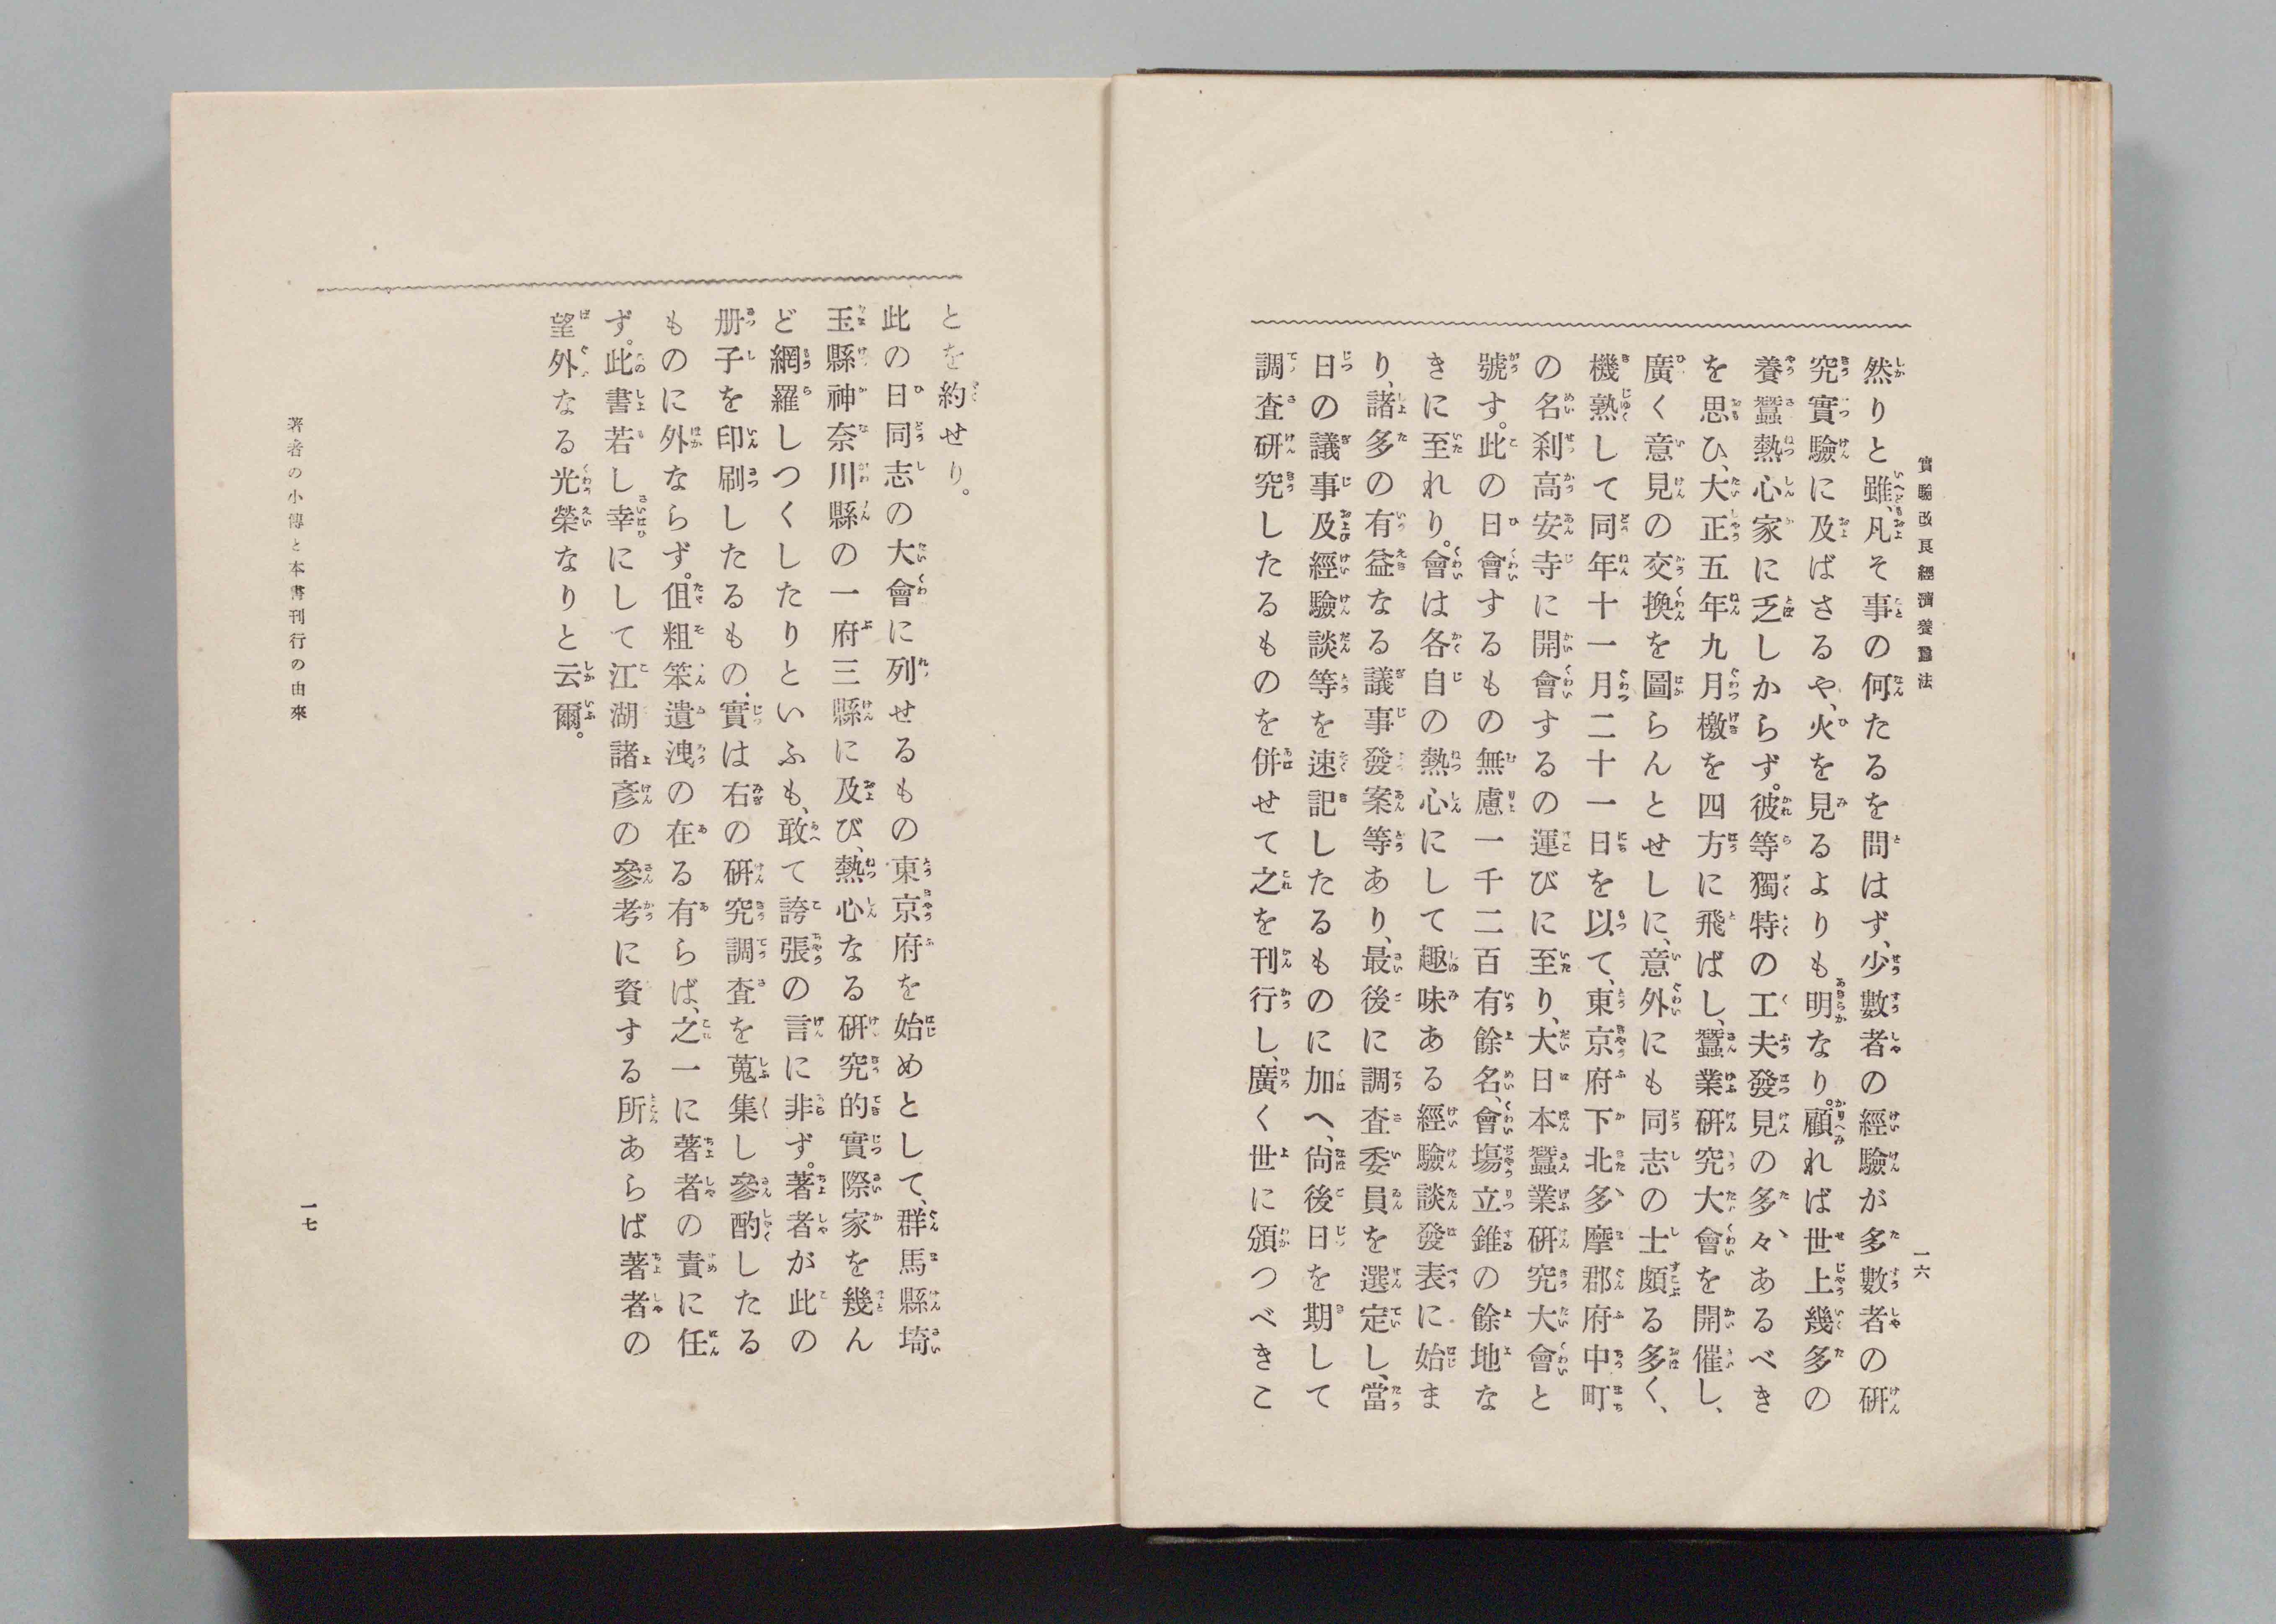 實驗改良經濟養蠶法
一六
然りと雖、凡そ事の何たるを問はず、少數者の經驗が多數者の研
究實驗に及ばさるや、火を見るよりも明なり。顧れば世上幾多の
養蠶熱心家に乏しからず。彼等獨特の工夫發見の多々、あるべき
を思ひ、大正五年九月檄を四方に飛ばし、蠶業研究大會を開催し、
廣く意見の交換を圖らんとせしに、意外にも同志の士頗る多く、
機熟して同年十一月二十一日を以て、東京府下北多摩郡府中町
の名刹高安寺に開會するの運びに至り、大日本蠶業研究大會と
號す。此の日會するもの無慮一千二百有餘名、會塲立錐の餘地な
きに至れり。會は各自の熱心にして趣味ある經驗談發表に始ま
り、諸多の有益なる議事發案等あり、最後に調査委員を選定し、當
日の議事及經驗談等を速記したるものに加へ、尙後日を期して
調査研究したるものを併せて之を刊行し、廣く世に頒つべきこ
とを約せり。
此の日同志の大會に列せるもの東京府を始めとして、群馬縣埼
玉縣神奈川縣の一府三縣に及び、熱心なる研究的實際家を幾ん
ど網羅しつくしたりといふも、敢て誇張の言に非ず。著者が此の
册子を印刷したるもの、實は右の研究調査を蒐集し參酌したる
ものに外ならず。伹粗笨遺洩の在る有らば、之一に著者の責に任
ず。此書若し幸にして江湖諸彥の參考に資する所あらば著者の
望外なる光榮なりと云爾。
著者の小傳と本書刊行の由來
一七